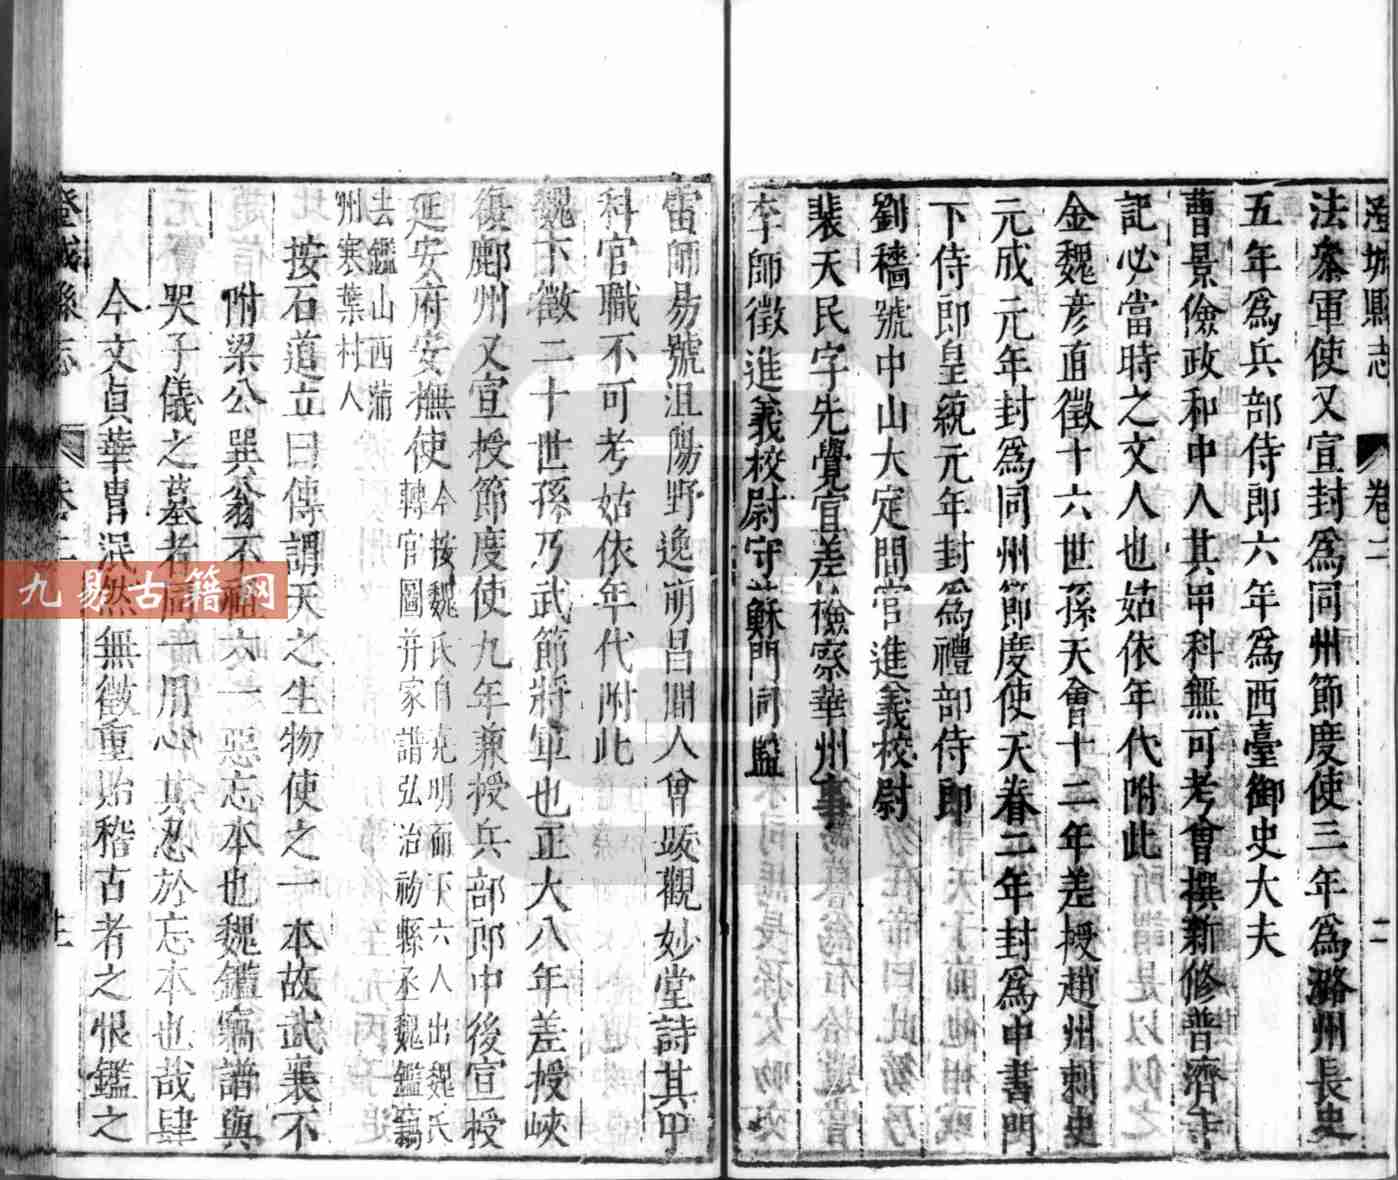 澄城縣志
卷二
法叅軍使又宣封爲同州節度使三年爲潞州長史
五年爲兵部侍郎六年爲西臺御史大夫
曹景儉政和中人其甲科無可考會撰新修普濟寺
記必當時之文人也姑依年代附此
金魏彥直徵十六世孫天會十二年差授趙州刺史
元成元年封爲同州節度使天眷二年封爲中書門
下侍郎皇統元年封爲禮部侍郎
劉穡號中山大定間官進義校尉
裴天民字先覺官差檢察華州事
李師徵進義校尉守蘇門同監
雷師易號沮陽野逸明昌間人曾跋觀妙堂詩其甲
科官職不可考姑依年代附此
魏卞徵二十世孫乃武節將軍也正大八年差授峽
復鄜州又宣授節度使九年兼授兵部郎中後宣授
延安府安撫使今按魏氏自克明而下六人出魏氏
轉官圖并家譜弘治初縣丞魏鑑竊
去鑑山西蒲
州寒葉村人
按石道立曰傳謂天之生物使之一本故武襄不
附梁公巽翁不祖六一惡忘本也魏鑑竊譜與
哭子儀之墓者同
用心其忍於忘本也哉肆
今文貞華胄泯然無徵重貽稽古者之恨鑑之
澄城縣志
卷二
九易古籍网